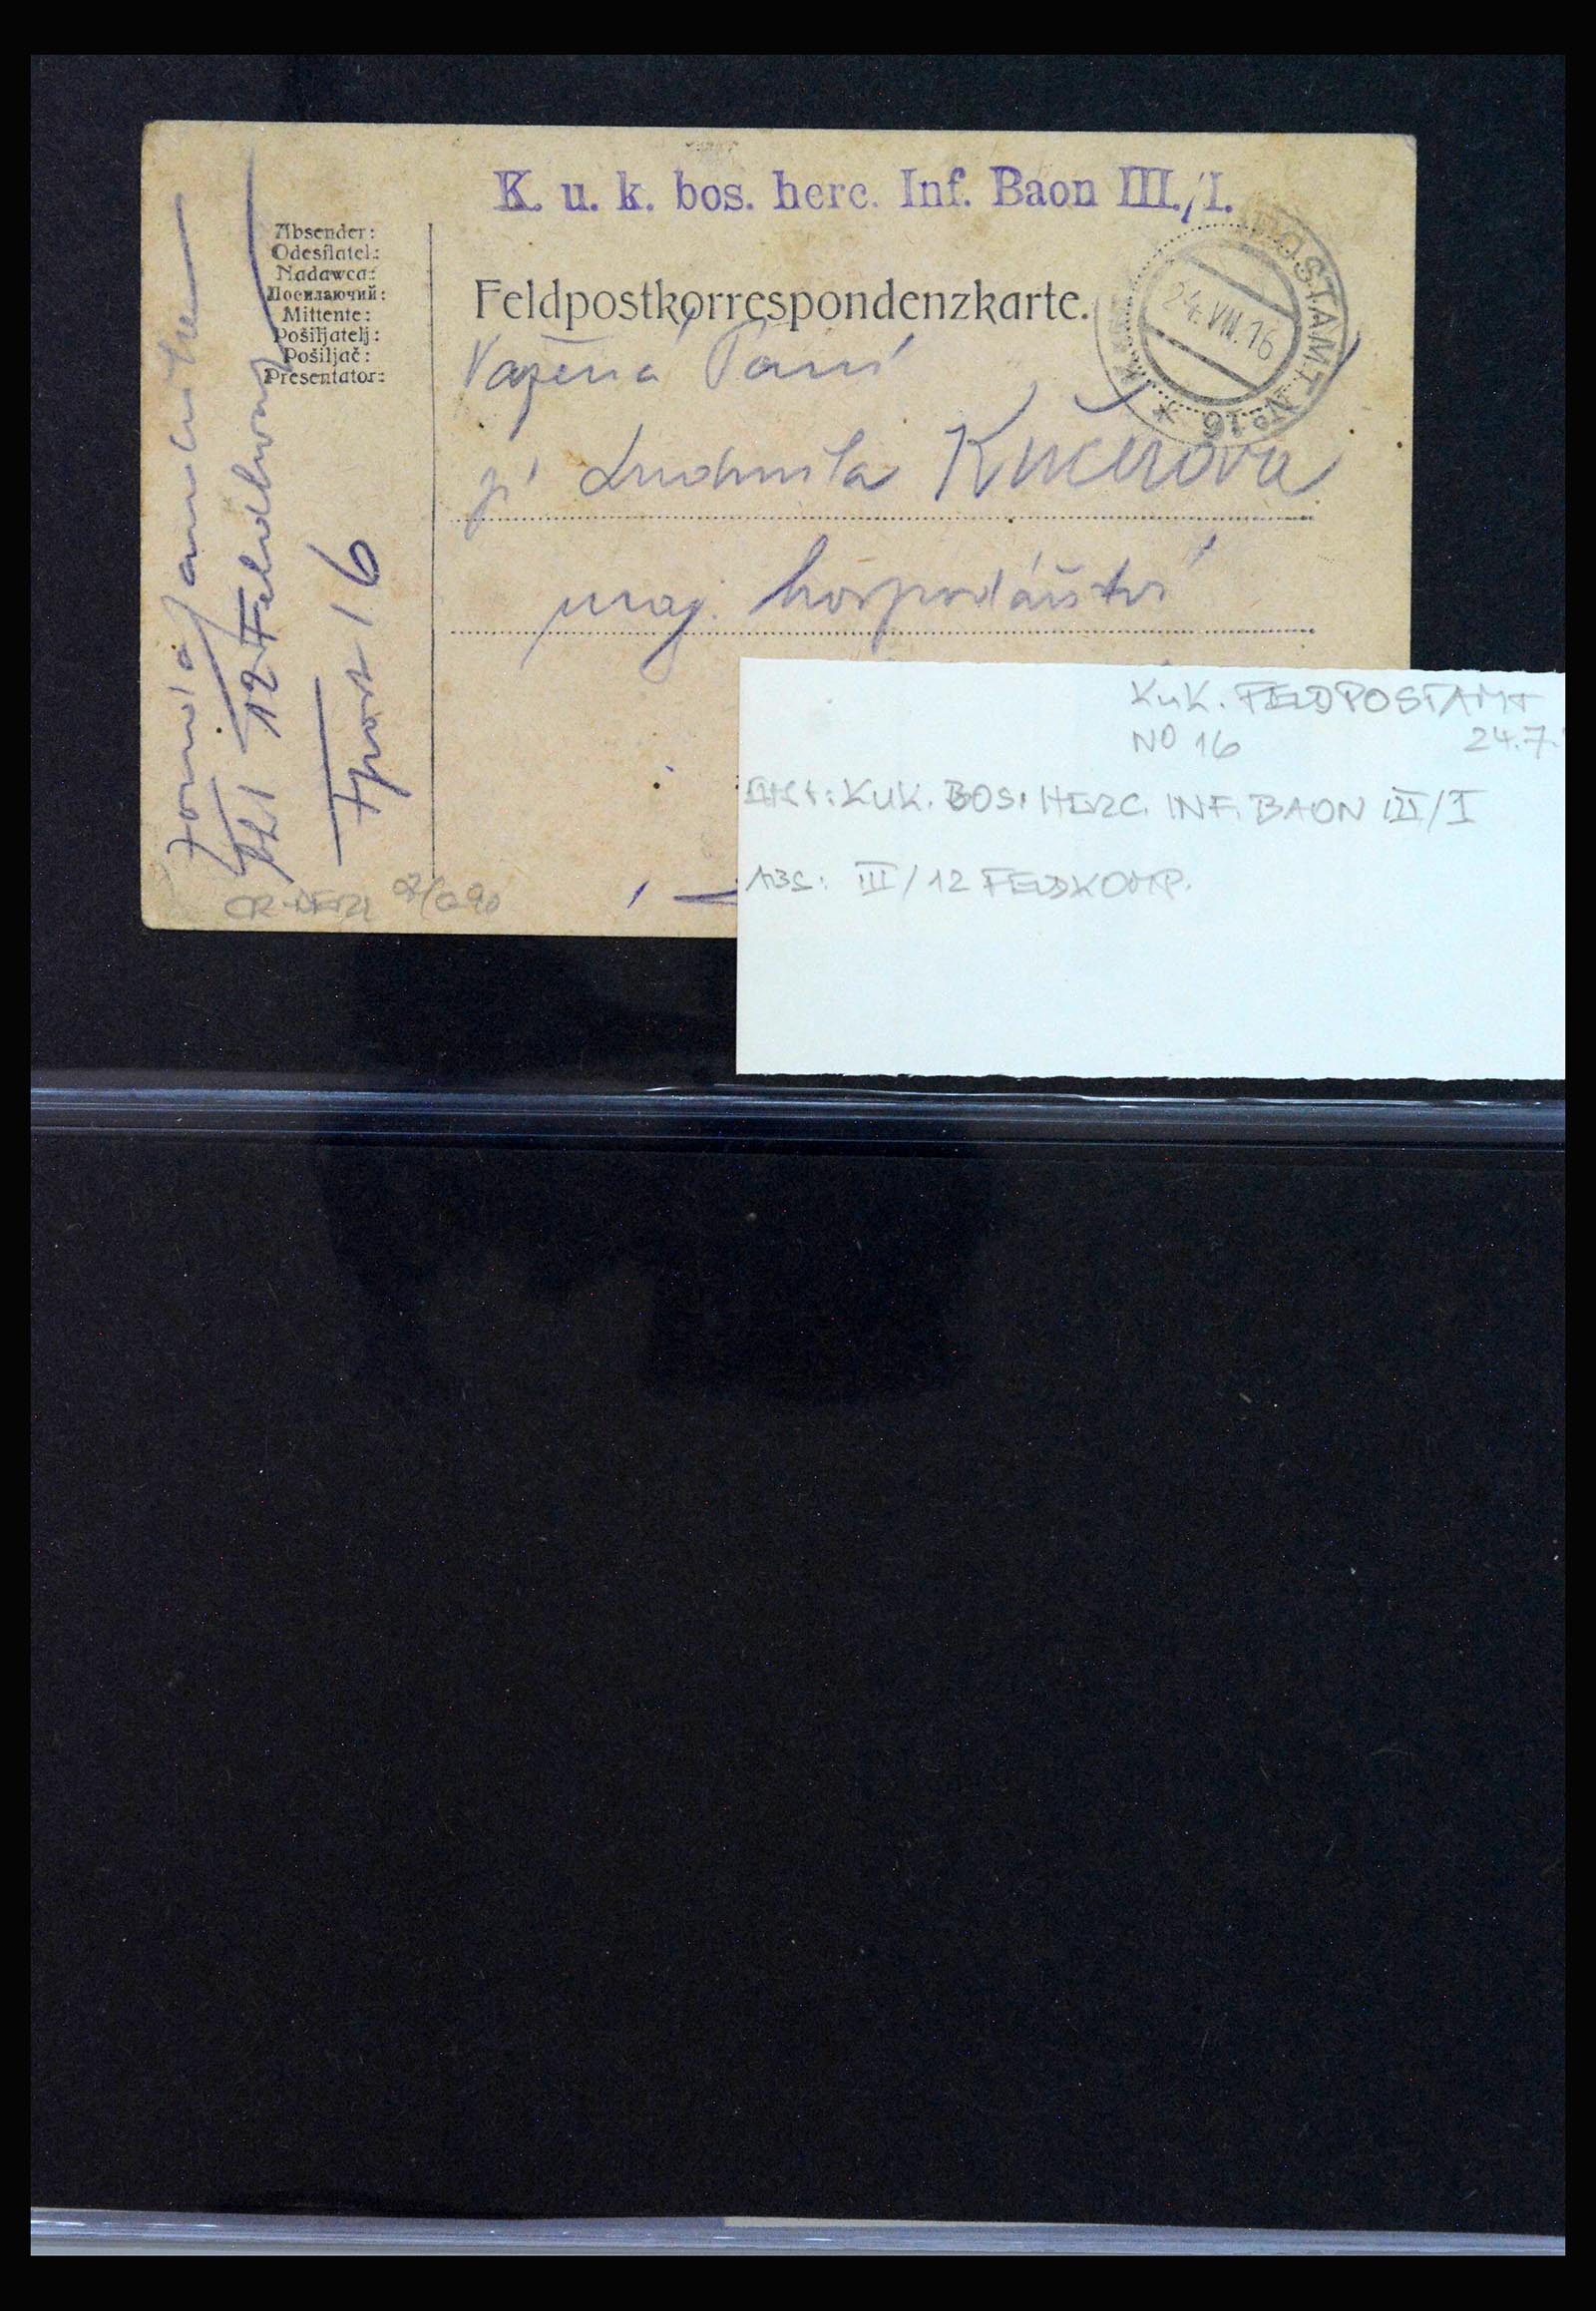 K. u. k. bos. herc. Inf. Baon III./I.
Absender:
Odesílatel:
Nadawca:
Посилаючий:
Mittente:
Pošiljatelj:
Pošiljač:
Presentator:
Feldpostkorrespondenzkarte.
POSTAMT No 16 *
24.VII.16
Važená Paní
pí Ludmila Kučerova
maj. hospodářství
12 Feld
16
K u K. FELDPOSTAMT
NO 16 24.7.
KUK. BOS. HERC. INF. BAON III/I
ABS: III/12 FELDKOMP.